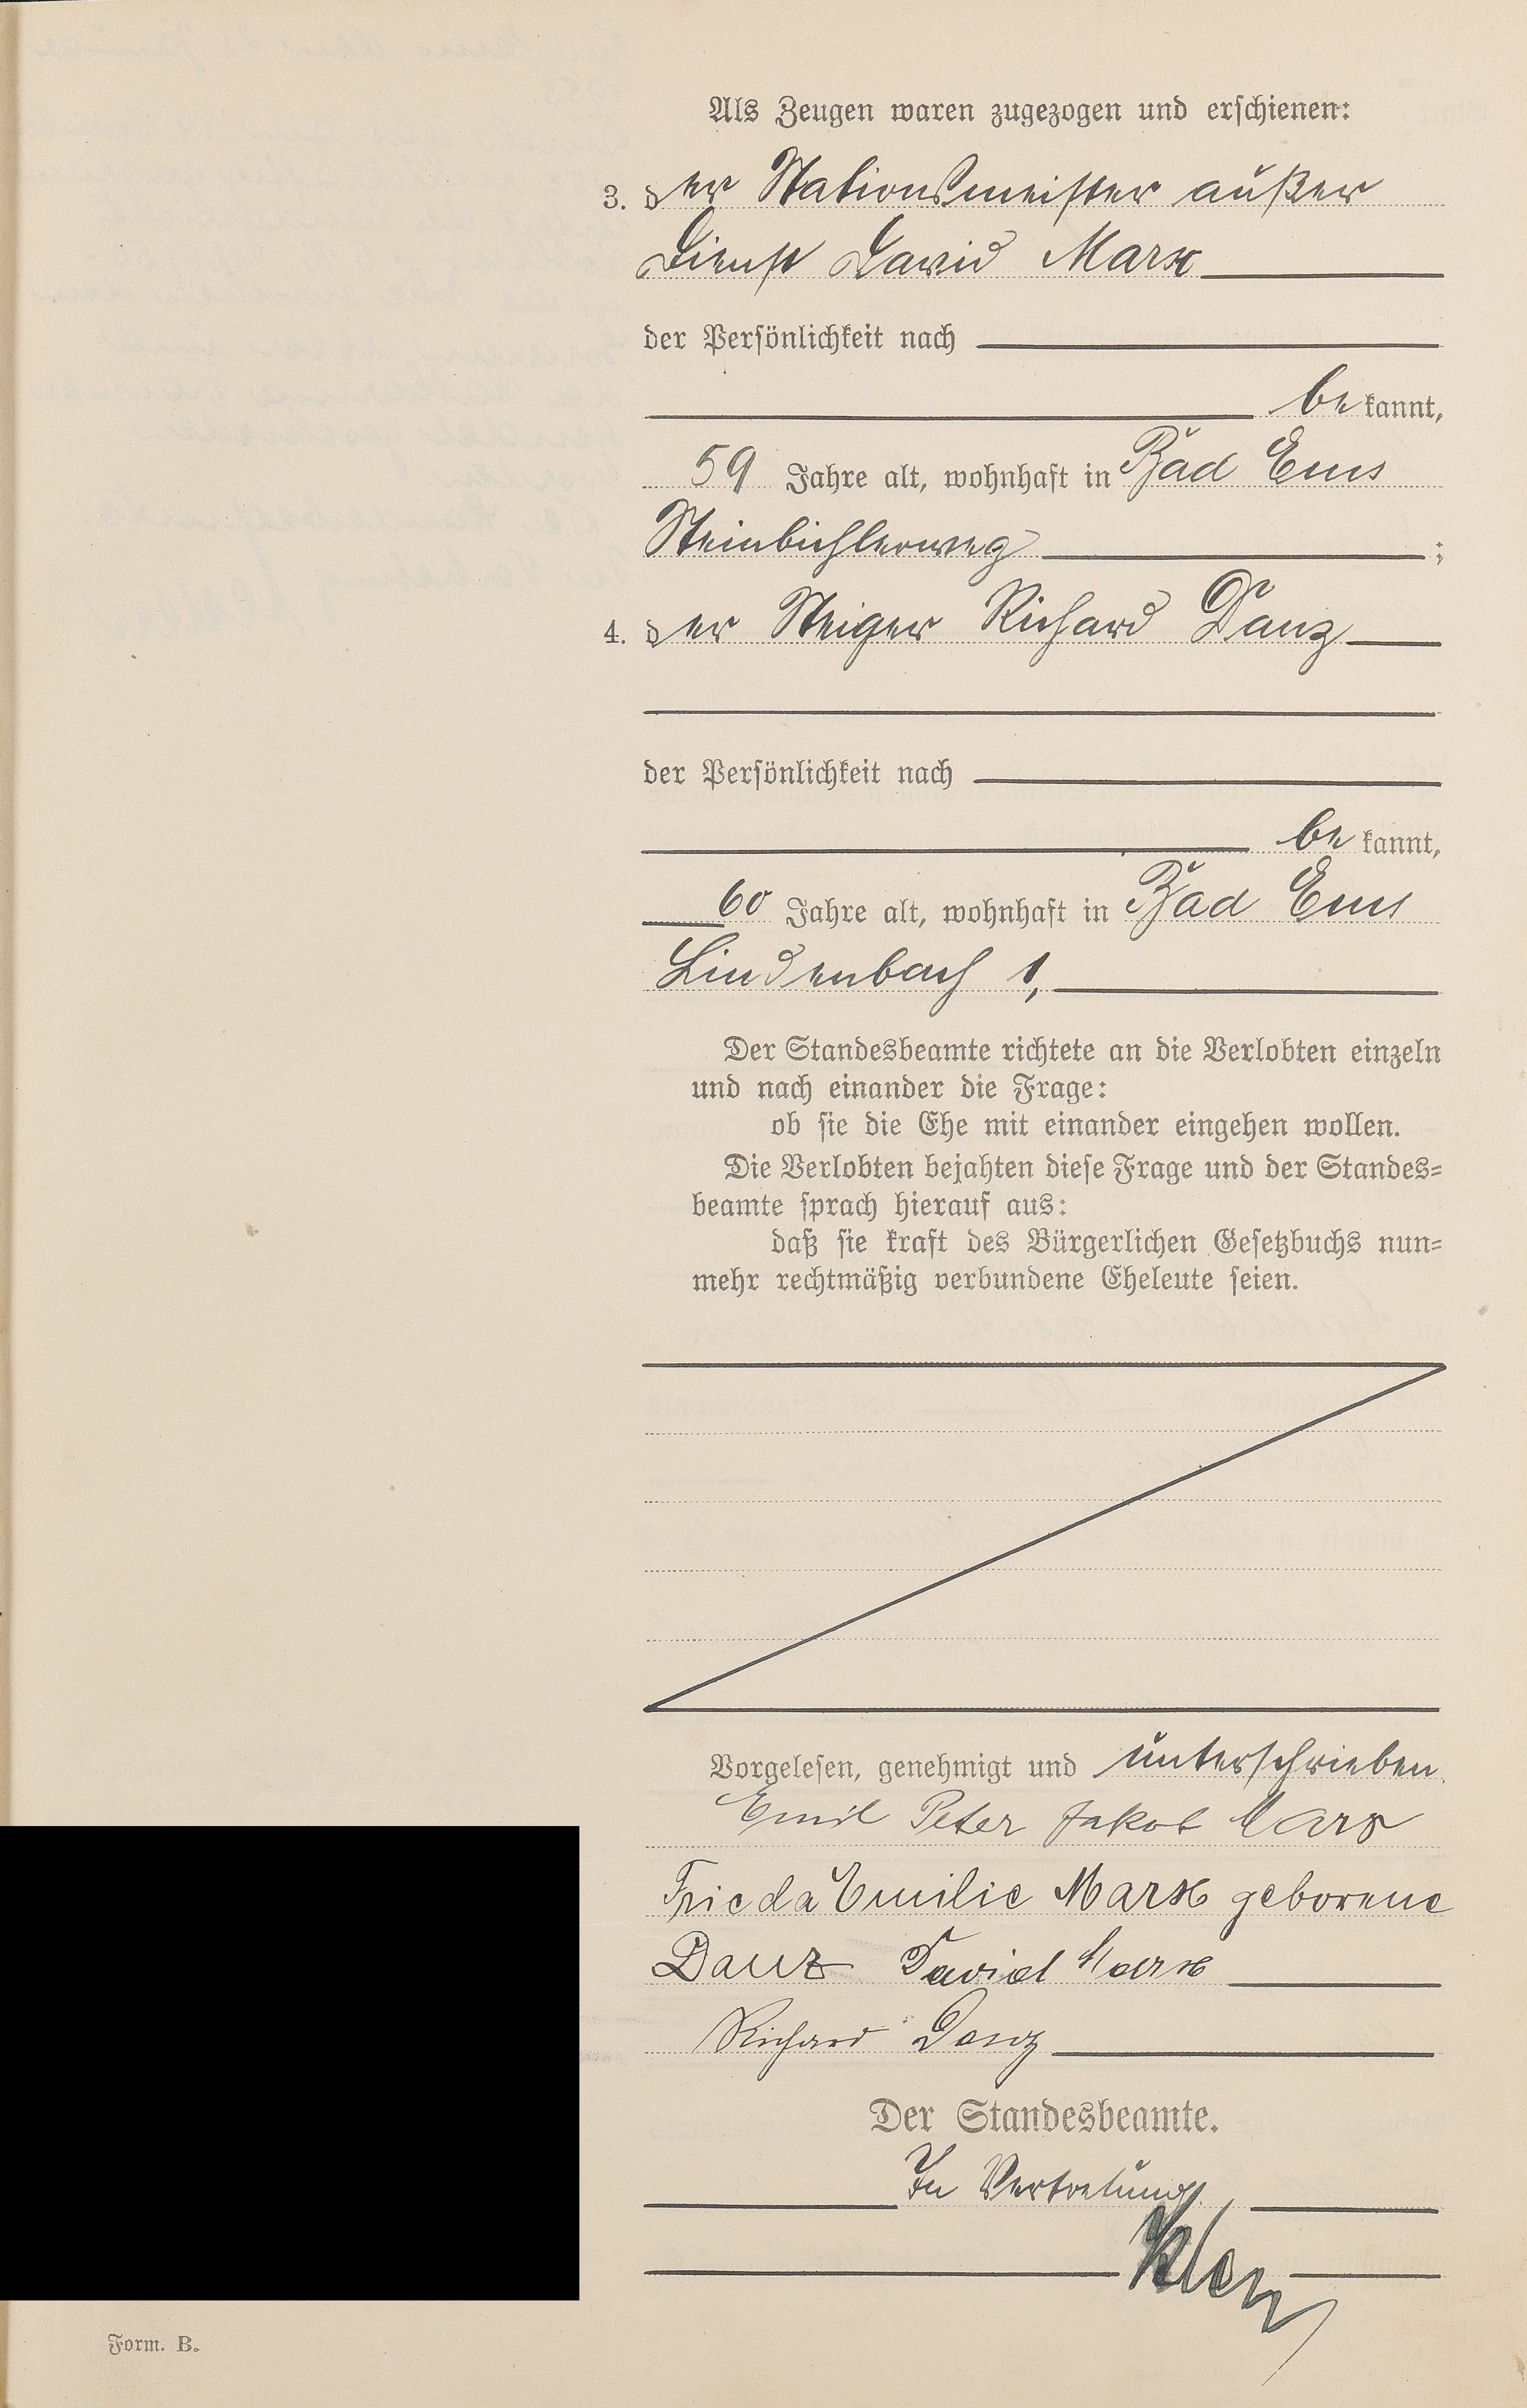 Als Zeugen waren zugezogen und erschienen:
3. der Stationsmeister außer
Dienst David Marx
der Persönlichkeit nach
bekannt,
59 Jahre alt, wohnhaft in Bad Ems
4. der Steiger Richard Danz
der Persönlichkeit nach
bekannt,
60 Jahre alt, wohnhaft in Bad Ems
Lindenbach 1,
Der Standesbeamte richtete an die Verlobten einzeln
und nach einander die Frage:
ob sie die Ehe mit einander eingehen wollen.
Die Verlobten bejahten diese Frage und der Standes=
beamte sprach hierauf aus:
daß sie kraft des Bürgerlichen Gesetzbuchs nun=
mehr rechtmäßig verbundene Eheleute seien.
Vorgelesen, genehmigt und unterschrieben
Emil Peter Jakob Marx
Frieda Emilie Marx geborene
Danz David Marx
Richard Danz
Der Standesbeamte.
In Vertretung
Form. B.